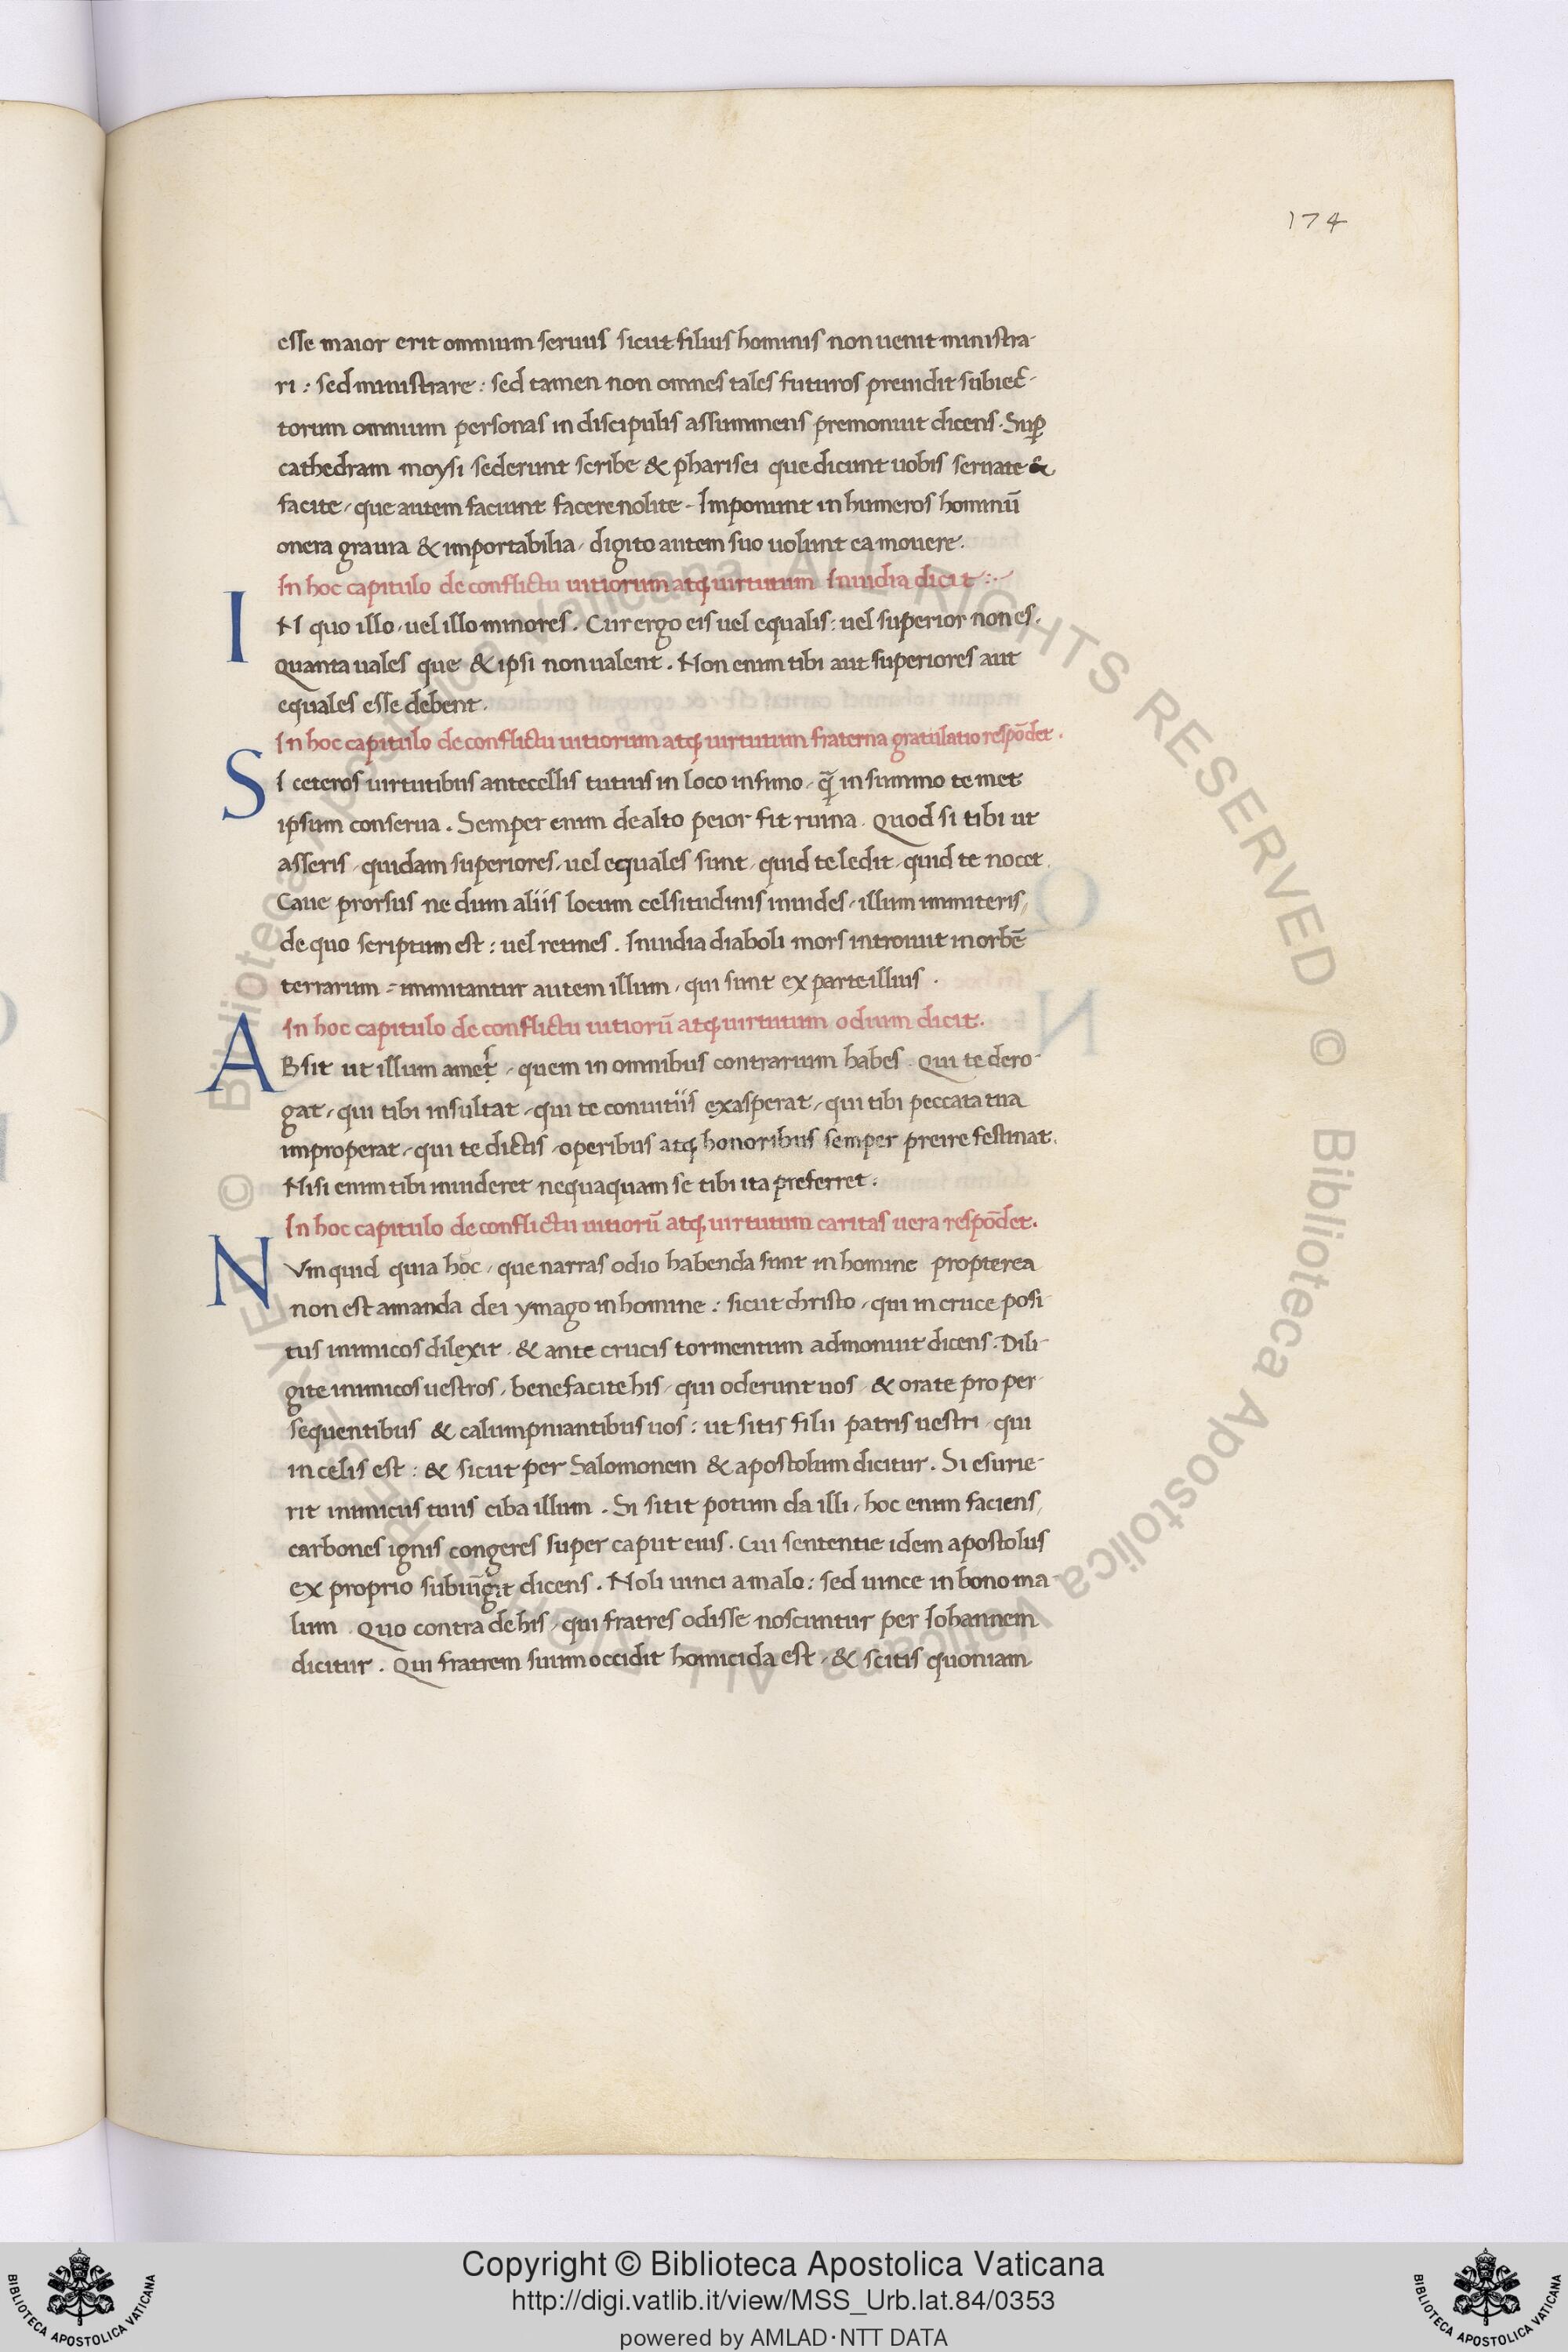 174
esse maior erit omnium seruus sicut filius hominis non uenit ministra-
ri: sed ministrare: sed tamen non omnes tales futuros preuidit subiec-
torum omnium personas in discipulis assummens premonuit dicens. Sup̄
cathedram moysi sederunt scribe & pharisei que dicunt uobis seruate &
facite, que autem faciunt facere nolite. Imponunt in humeros hominū
onera grauia & importabilia, digito autem suo uolunt ea mouere.
In hoc capitulo de conflictu uitiorum atq; uirtutum Inuidia dicit:.
IN quo illo, uel illo minores. Cur ergo eis uel equalis: uel superior non es.
Quanta uales que & ipsi non ualent. Non enim tibi aut superiores aut
equales esse debent.
In hoc capitulo de conflictu uitiorum atq; uirtutum fraterna gratulatio respōdet.
SI ceteros uirtutibus antecellis tutius in loco infimo, q̄ in summo te met
ipsum conserua. Semper enim de alto peior fit ruina. Quod si tibi ut
asseris, quidam superiores, uel equales sunt, quid te ledit, quid te nocet.
Caue prorsus ne dum aliis locum celsitudinis inuides, illum immiteris,
de quo scriptum est: uel retines. Inuidia diaboli mors introiuit in orbē
terrarum = immitantur autem illum, qui sunt ex parte illius.
In hoc capitulo de conflictu uitiorū atq; uirtutum odium dicit.
ABsit ut illum ames, quem in omnibus contrarium habes. Qui te dero-
gat, qui tibi insultat, qui te conuitiis exasperat, qui tibi peccata tua
improperat, qui te dictis, operibus atq; honoribus semper preire festinat.
Nisi enim tibi inuideret nequaquam se tibi ita preferret.
In hoc capitulo de conflictu uitiorū atq; uirtutum caritas uera respōdet.
NVnquid quia hoc, que narras odio habenda sunt in homine propterea
non est amanda dei ymago in homine: sicut christo, qui in cruce posi-
tus inimicos dilexit, & ante crucis tormentum admonuit dicens. Dili-
gite inimicos uestros, benefacite his, qui oderunt uos, & orate pro per-
sequentibus & calumpniantibus uos: ut sitis filii patris uestri, qui
in celis est: & sicut per Salomonem & apostolum dicitur. Si esurie-
rit inimicus tuus ciba illum. Si sitit potum da illi, hoc enim faciens,
carbones ignis congeres super caput eius. Cui sententie idem apostolus
ex proprio subiūgit dicens. Noli uinci a malo: sed uince in bono ma-
lum. Quo contra de his, qui fratres odisse noscuntur per Iohannem
dicitur. Qui fratrem suum occidit homicida est, & scitis quoniam
© Biblioteca Apostolica Vaticana ALL RIGHTS RESERVED © Biblioteca Apostolica Vaticana ALL RIGHTS RESERVED
Copyright © Biblioteca Apostolica Vaticana
http://digi.vatlib.it/view/MSS_Urb.lat.84/0353
powered by AMLAD·NTT DATA
BIBLIOTECA APOSTOLICA VATICANA
BIBLIOTECA APOSTOLICA VATICANA